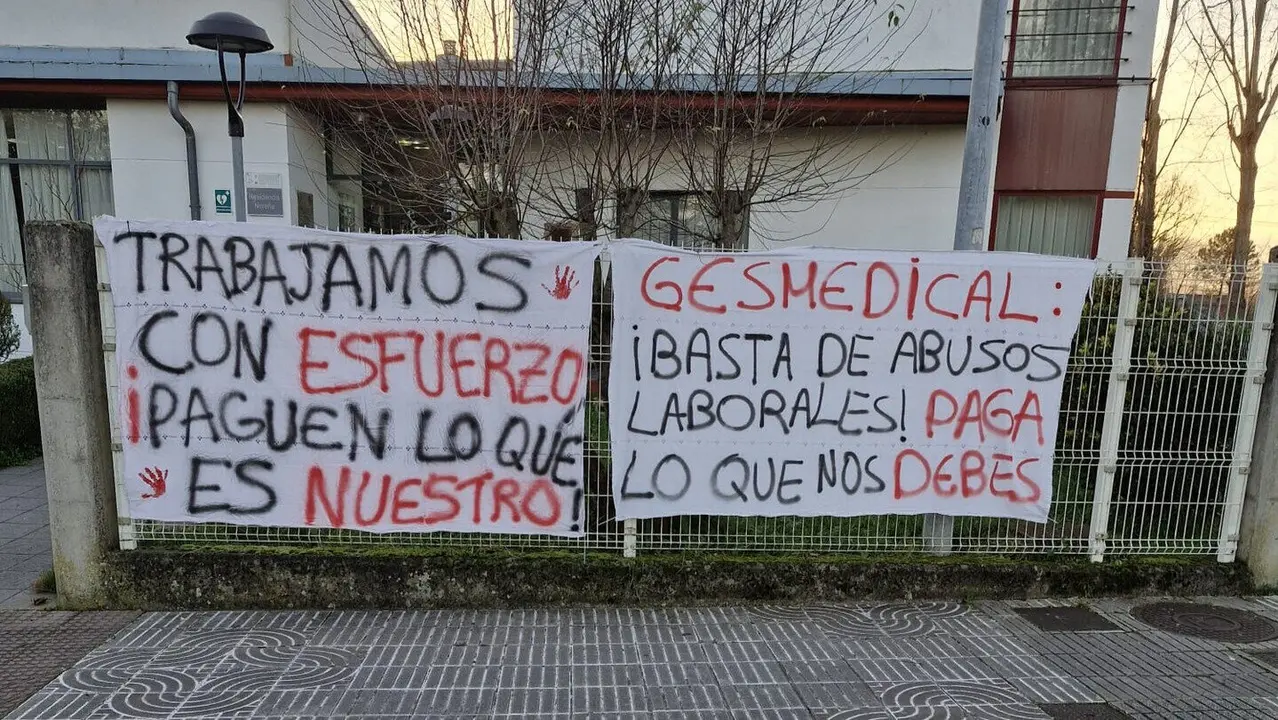 TRABAJAMOS
CON ESFUERZO
¡PAGUEN LO QUE
ES NUESTRO!
GESMEDICAL:
¡BASTA DE ABUSOS
LABORALES! PAGA
LO QUE NOS DEBES
Residencia